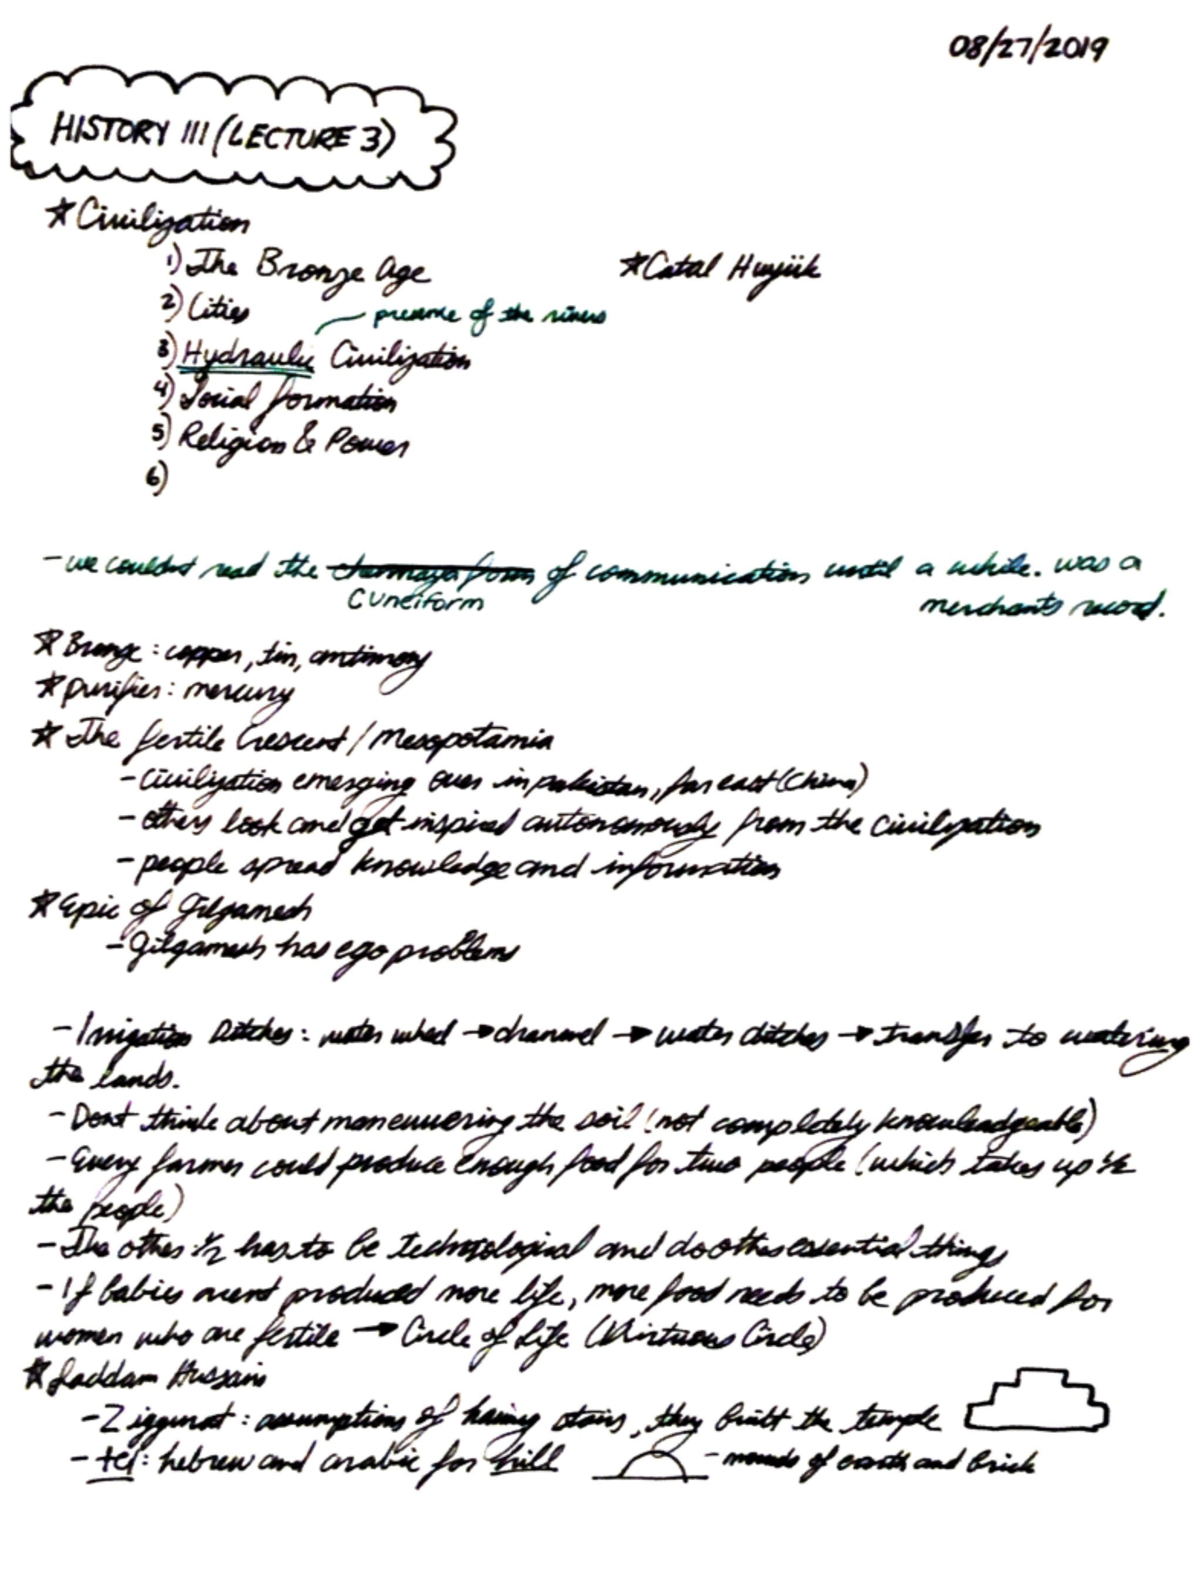 08/27/2019
HISTORY 111 (LECTURE 3)
★ Civilization
1) The Bronze Age
★ Catal Huyük
2) Cities
presence of the rivers
3) Hydraulic Civilization
4) Social formation
5) Religion & Power
6)
- we couldnt read the of communication until a while. was a
cuneiform
merchants record.
★ Bronze: copper, tin, antimony
★ purifies: mercury
★ The fertile Crescent / Mesopotamia
- civilization emerging over in pakistan, far east (China)
- others look and get inspired autonomously from the civilization
- people spread knowledge and information
★ Epic of Gilgamesh
- Gilgamesh has ego problems
- Irrigation Ditches: water wheel → channel → water ditches → transfer to watering
the lands.
- Dont think about maneuvering the soil (not completely knowleadgeable)
- Every farmer could produce enough food for two people (which takes up 1/2
the people)
- The other 1/2 has to be technological and do other essential things
- If babies arent produced more life, more food needs to be produced for
women who are fertile → Circle of Life (Virtuous Circle)
★ Saddam Hussain
- Ziggurat: assumptions of having stairs, they built the temple
- tel: hebrew and arabic for hill
- mounds of earth and brick